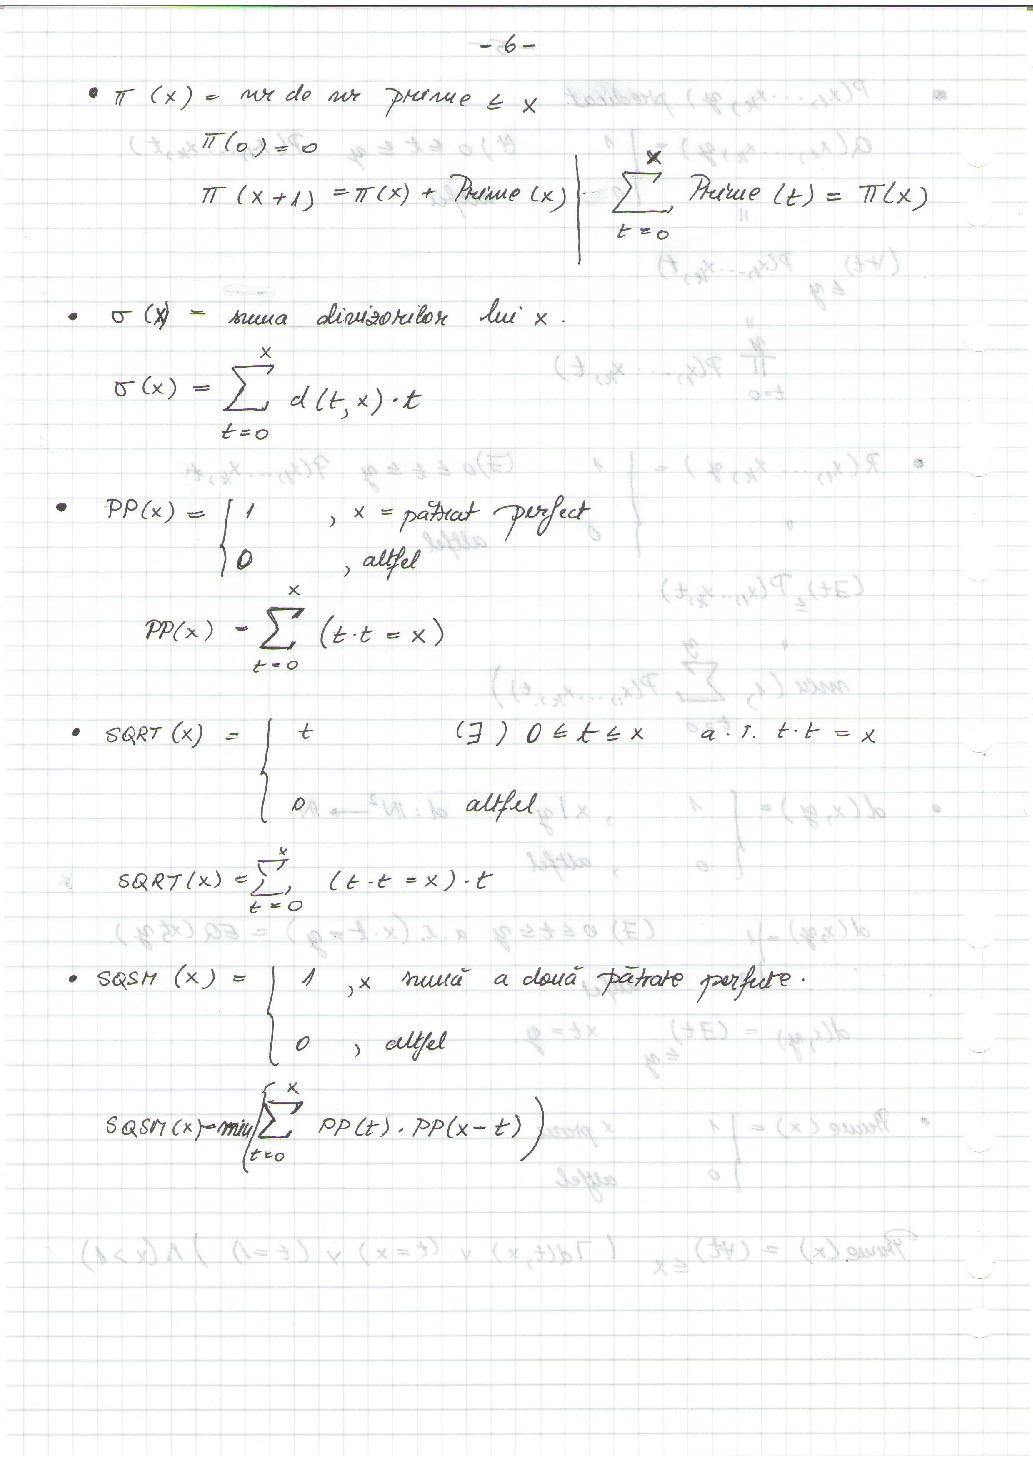 - 6 -
• π (x) = nr de nr prime ≤ x
π(0) = 0
π (x+1) = π(x) + Prime (x) | ∑_{t=0}^{x} Prime (t) = π(x)
• σ (x) = suma divizorilor lui x .
σ (x) = ∑_{t=0}^{x} d (t, x) · t
• PP(x) = { 1 , x = pătrat perfect
0 , altfel
PP(x) = ∑_{t=0}^{x} (t·t = x)
• SQRT (x) = { t (∃) 0 ≤ t ≤ x a. î. t·t = x
0 altfel
SQRT(x) = ∑_{t=0}^{x} (t·t = x) · t
• SQSM (x) = { 1 , x sumă a două pătrate perfecte .
0 , altfel
SQSM(x) = min ( ∑_{t=0}^{x} PP(t) · PP(x-t) )